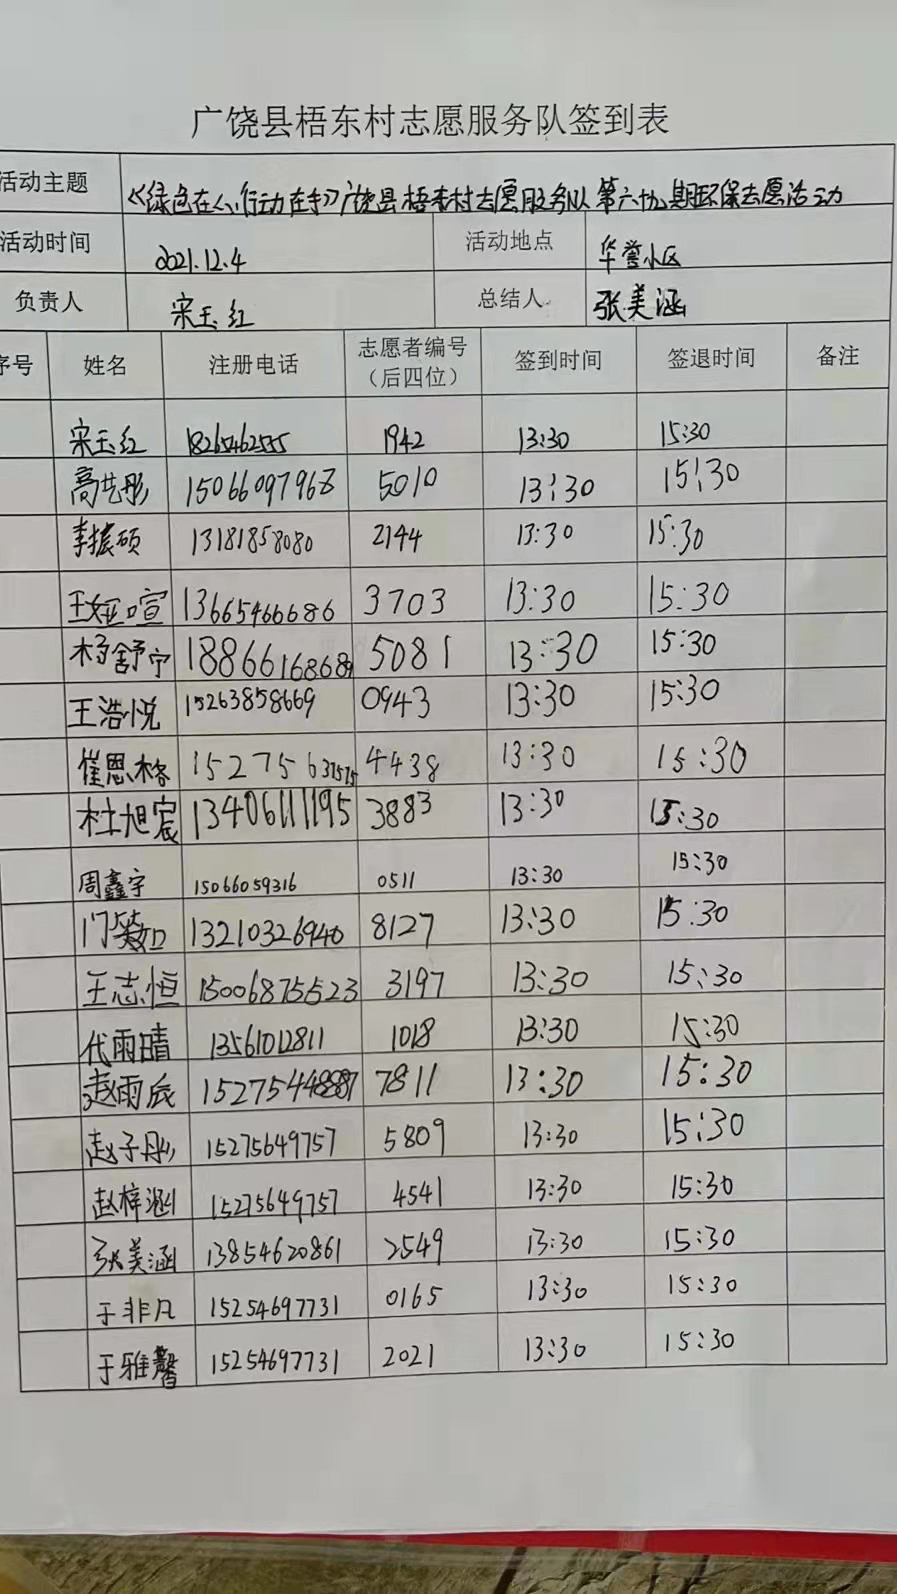 广饶县梧东村志愿服务队签到表
活动主题 《绿色在心、行动在手》广饶县梧东村志愿服务队第六十九期环保志愿活动
活动时间 2021.12.4 活动地点 华誉小区
负责人 宋玉红 总结人 张美涵
序号 姓名 注册电话 志愿者编号（后四位） 签到时间 签退时间 备注
宋玉红 18265462555 1942 13:30 15:30
高艺彤 15066097968 5010 13:30 15:30
李振硕 13181858080 2144 13:30 15:30
王娅喧 13665466686 3703 13:30 15:30
杨舒宁 5081 13:30 15:30
王浩悦 15263858669 0943 13:30 15:30
崔恩榕 4438 13:30 15:30
杜旭宸 13406111195 3883 13:30 15:30
周鑫宇 15066059316 0511 13:30 15:30
门 13210326940 8127 13:30 15:30
王志恒 15006875523 3197 13:30 15:30
代雨晴 13561012811 1018 13:30 15:30
赵雨辰 7811 13:30 15:30
赵子彤 15275649757 5809 13:30 15:30
赵梓涵 15275649757 4541 13:30 15:30
张美涵 13854620861 2549 13:30 15:30
于非凡 15254697731 0165 13:30 15:30
于雅馨 15254697731 2021 13:30 15:30